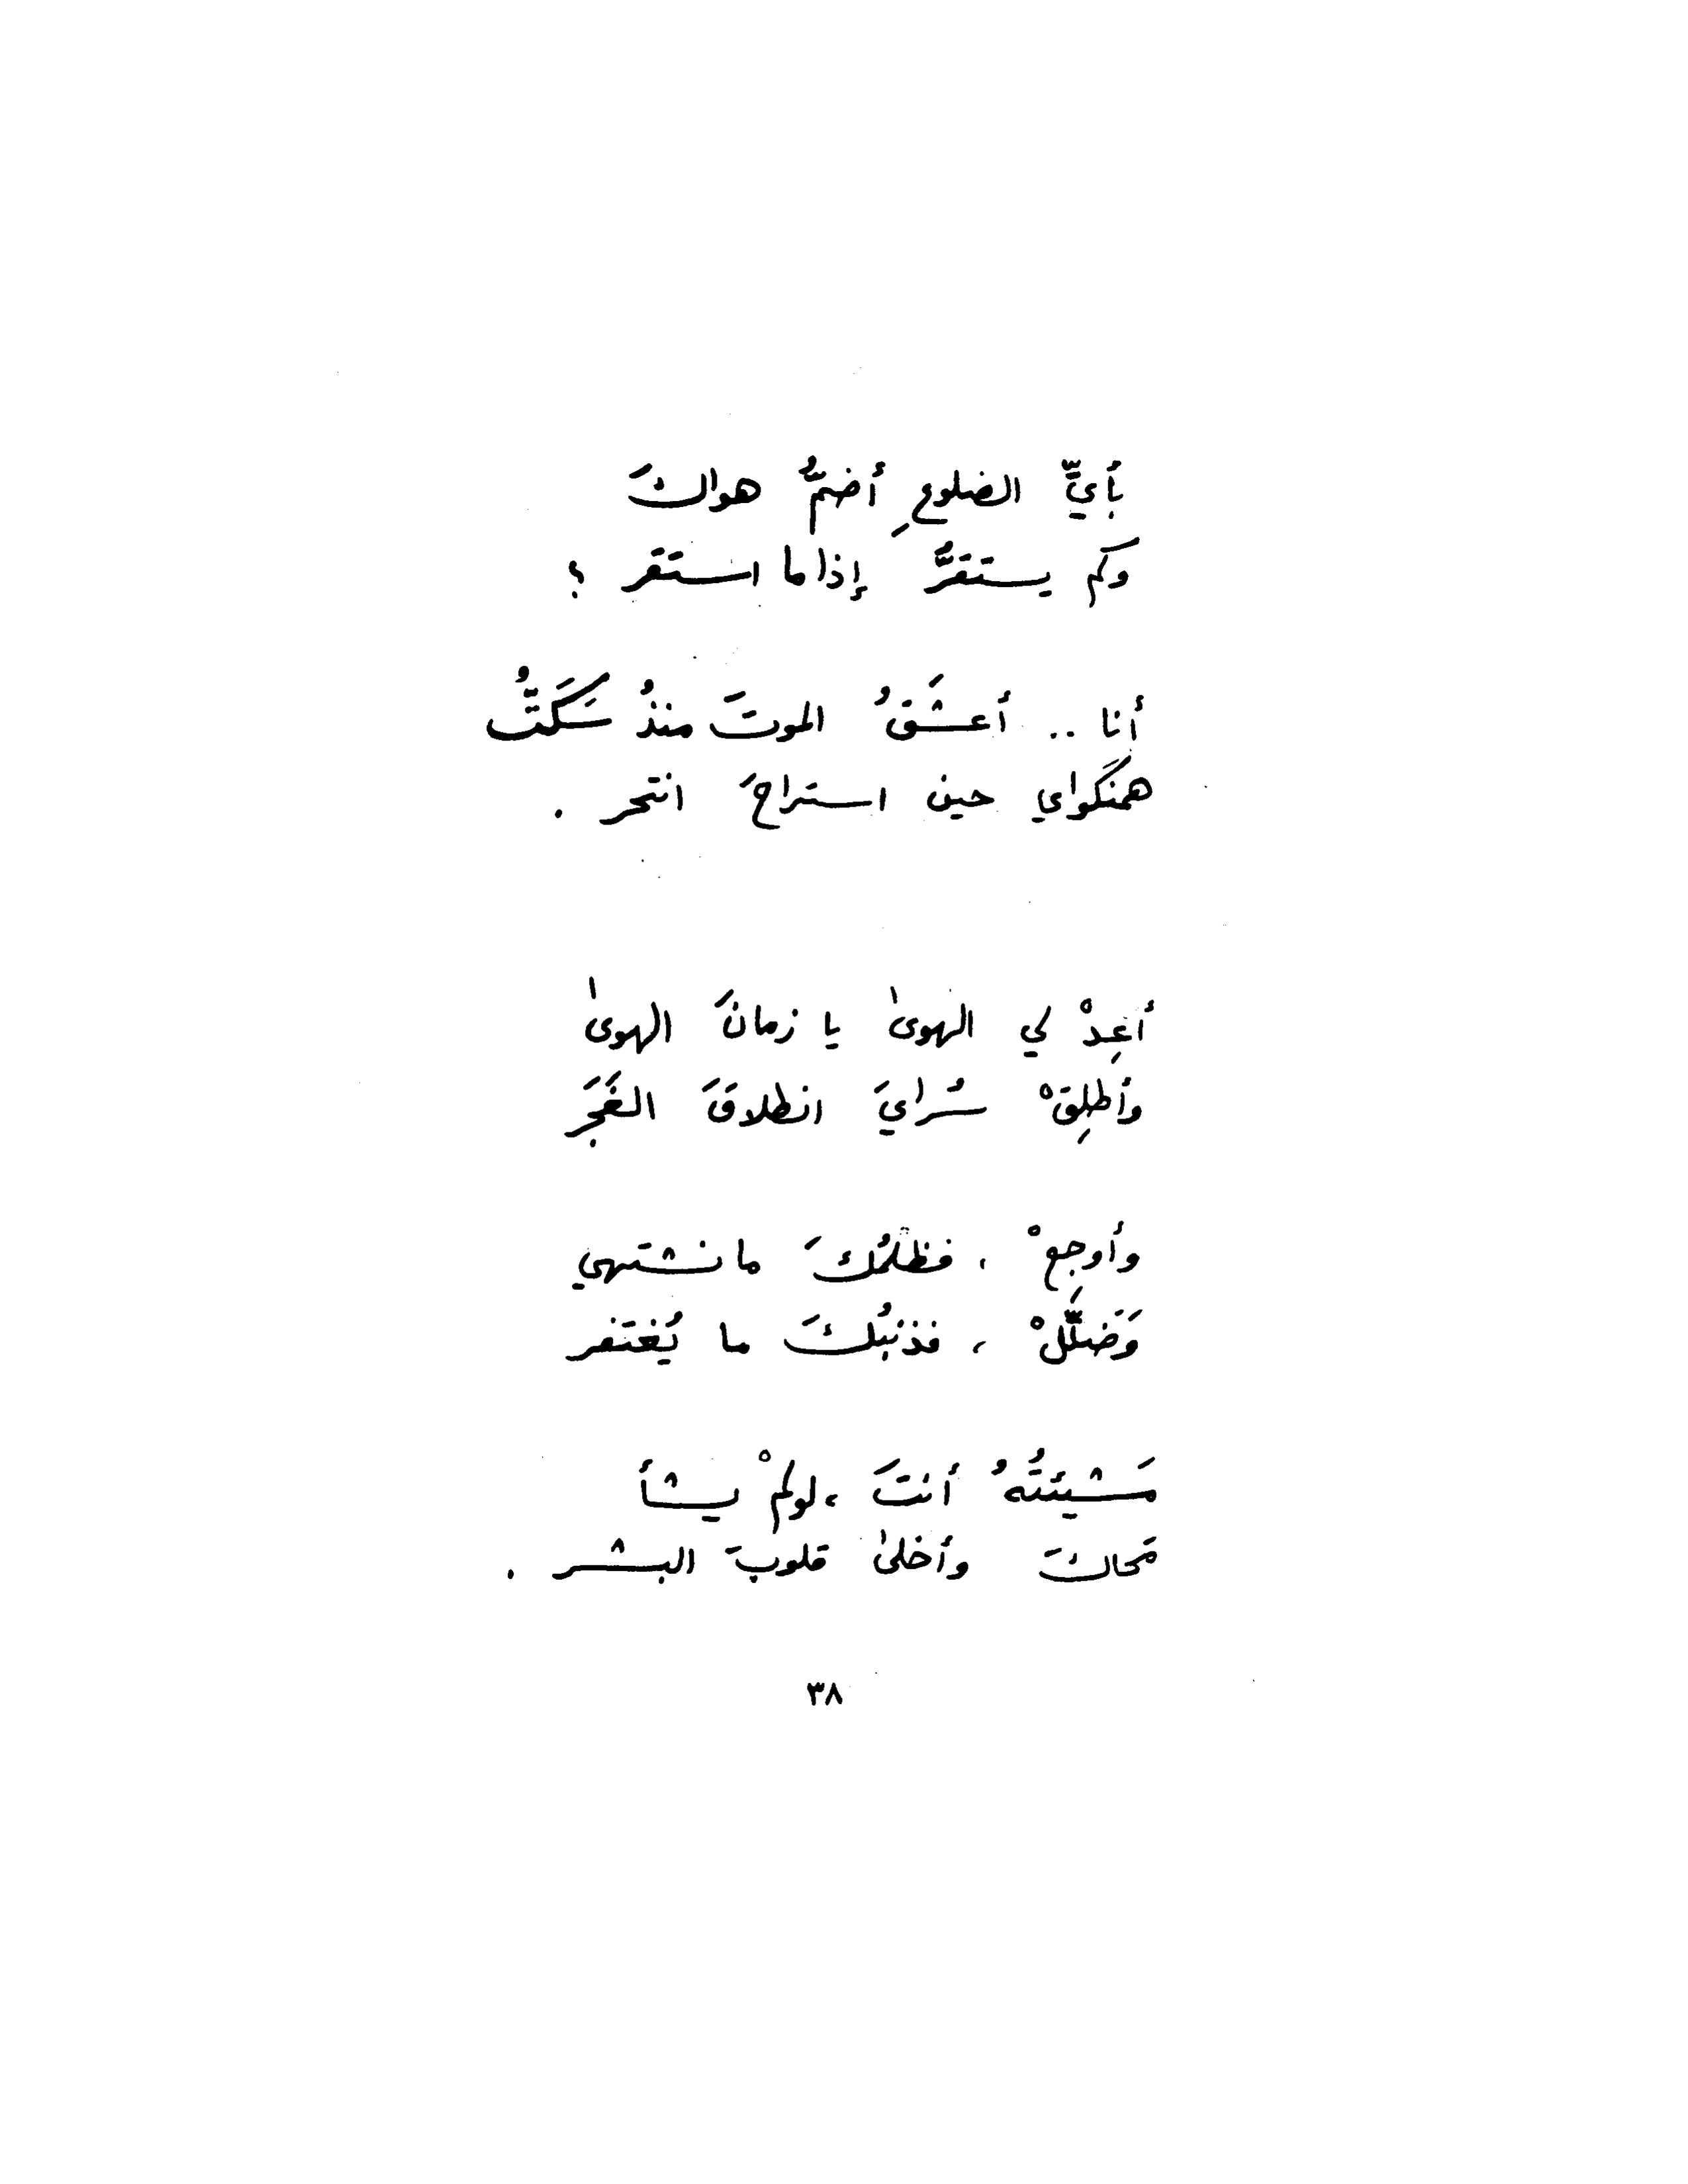 بأيِّ الضلوعِ أضمُّ هواكَ
وكم يستقرُّ إذا ما استقر ؟
أنا .. أعشَقُ الموتَ منذُ سَكَتُّ
همنَكَواي حين استراحَ انتحر .
أعِدْ لي الهوىٰ يا زمانَ الهوىٰ
وأطلِقْ سُرايَ انطلاقَ الغَجَر
وأوجِعْ ، فظلمُكَ ما نشتهي
وَضَلِّلْ ، فذنبُكَ ما يُغتفر
مَشيئتُهُ أنتَ ، لو لمْ يشأ
مَحاكَ وأخلىٰ قلوبَ البشر .
٣٨